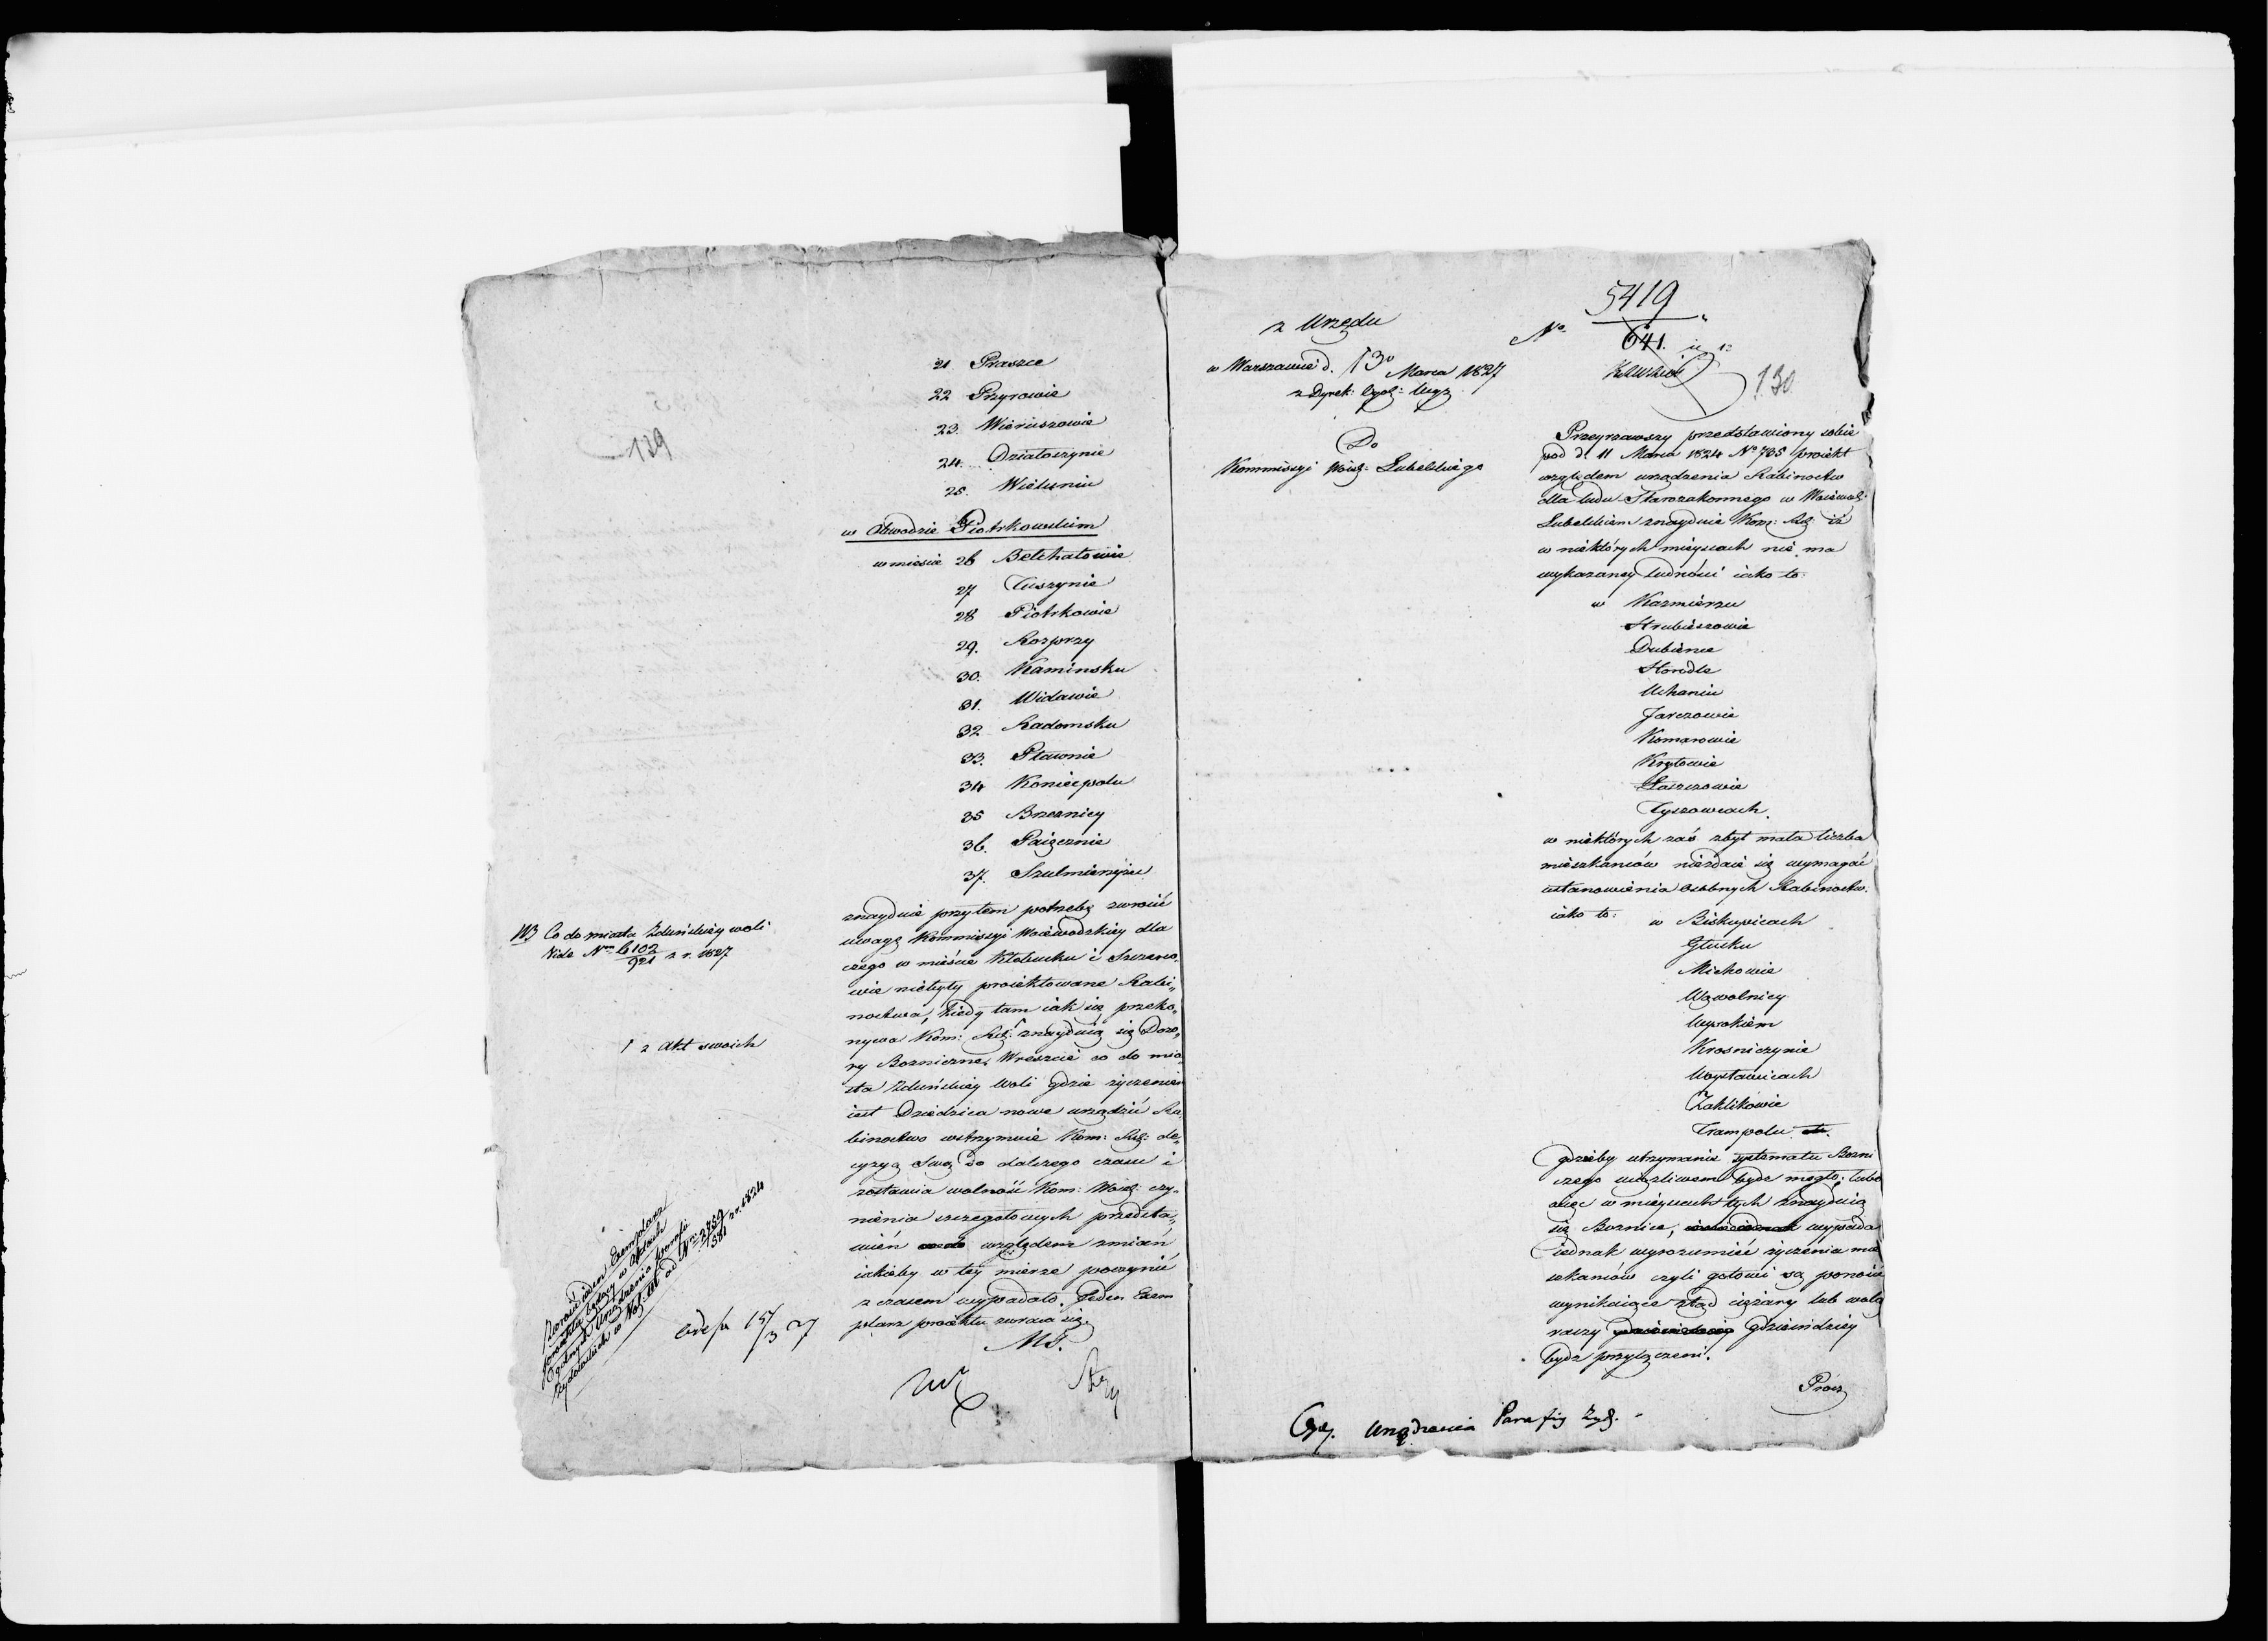 129
21 Praszce
22 Przyrowie
23. Wieruszowie
24. Działoszynie
25. Wieluniu
w Obwodzie Piotrkowskim
w mieście 26 Bełchatowie
27 Tuszynie
28 Piotrkowie
29. Rozprzy
30. Kaminsku
31. Widawie
32 Radomsku
33. Pławnie
34 Koniecpolu
35 Brzeznicy
36. Paięcznie
37. Szulmierzycu
znayduie przytem potrzebę zwrócić
uwagę Kommissyi Woiewodzkiey dla
czego w mieście Kłobucku i Szczerco„
wie niebyły proiektowane Rabi„
noctwa, kiedy tam iak się przeko„
nywa Kom: Rzą: znayduią się Dozo„
ry Boznicze. Wreszcie co do mia„
sta Zduńskiey Woli gdzie życzeniem
iest Dziedzica nowe urządzić Ra„
binoctwo wstrzymuie Kom: Rzą: de„
cyzyą swą do dalszego czasu i
zostawia wolność Kom: Woię: czy„
nienia szczegołowych przedsta„
wień względem zmian
iakieby w tey mierze poczynić
z czasem wypadało. Jeden Exem
plarz proiektu zwraca się.
MP.
NB Co do miasta Zduńskiey woli
Vide Nrm 6102/921 z r. 1827
/ z Akt swoich
Jeden Exemplarz
proiektu będący w Aktach
Ogólnych Urządzenia parafii
żydowskich w ad Nrm 2759/581 z r. 1824
15/3 27
z Urzędu
w Warszawie d. 13o Marca 1827
z Dyrek: Wyz
Do
Kommissyi Woię: Lubelskiego
No. 5419/641.
130
Przeyrzawszy przedstawiony sobie
pod d. 11 Marca 1824 No 785 proiekt
względem urządzenia Rabinoctw
dla ludu Starozakonnego w Woiewodz:
Lubelskiem znayduie Kom: Rzą: iż
w niektórych mieyscach nie ma
wykazaney ludności iako to:
w Kazmierzu
Hrubieszowie
Dubience
Horodle
Uchaniu
Jarczowie
Komarowie
Kryłowie
Łaszczowie
Tyszowcach.
w niektórych zaś zbyt mała liczba
mieszkańców niezdaie się wymagać
ustanowienia osobnych Rabinoctw.
iako to: w Biskupicach
Głusku
Michowie
Wąwolnicy
Wysokiem
Krasniczynie
Woysławicach
Zaklikowie
Frampolu
gdzieby utrzymanie systematu Bozni
czego uciążliwem bydz mogło; lubo
więc w mieyscach tych znayduią
się Boznice, wypada
iednak wyrozumieć życzenia mie
szkańców czyli gotowi są ponosić
wynikaiące ztąd ciężary lub wolą
raczy gdzieindziey
bydz przyłączeni.
Prócz
Urządzenia Parafiy Żyd.